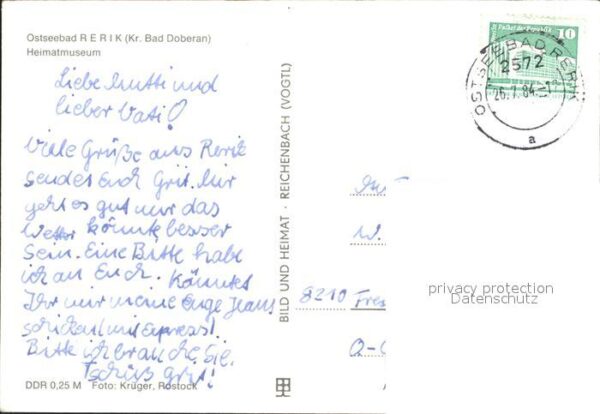 Ostseebad RERIK (Kr. Bad Doberan)
Heimatmuseum
Liebe Mutti und
lieber Vati!
Viele Grüße aus Rerik
sendet Euch Grit. Mir
geht es gut nur das
Wetter könnte besser
sein. Eine Bitte habe
ich an Euch. Könntet
Ihr mir meine enge Jeans
schicken mit Express!
Bitte ich brauche sie.
Tschüß Grit!
DDR 0,25 M Foto: Krüger, Rostock
BILD UND HEIMAT · REICHENBACH (VOGTL)
Palast der Republik
10
OSTSEEBAD RERIK
2572
26.7.84
a
W.
8210 Frei
privacy protection
Datenschutz